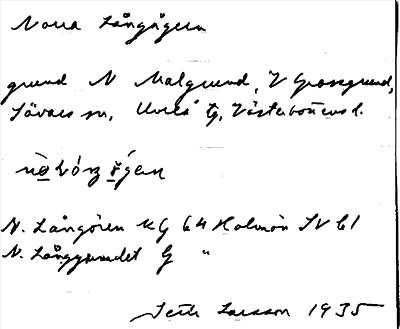 Norra Långögern
grund N Malgrund, V Grossgrund,
Sävars sn, Umeå tg, Västerbottens l.
N. Långören KG 64 Holmön SV 61
N. Långgrundet G "
Seth Larsson 1935